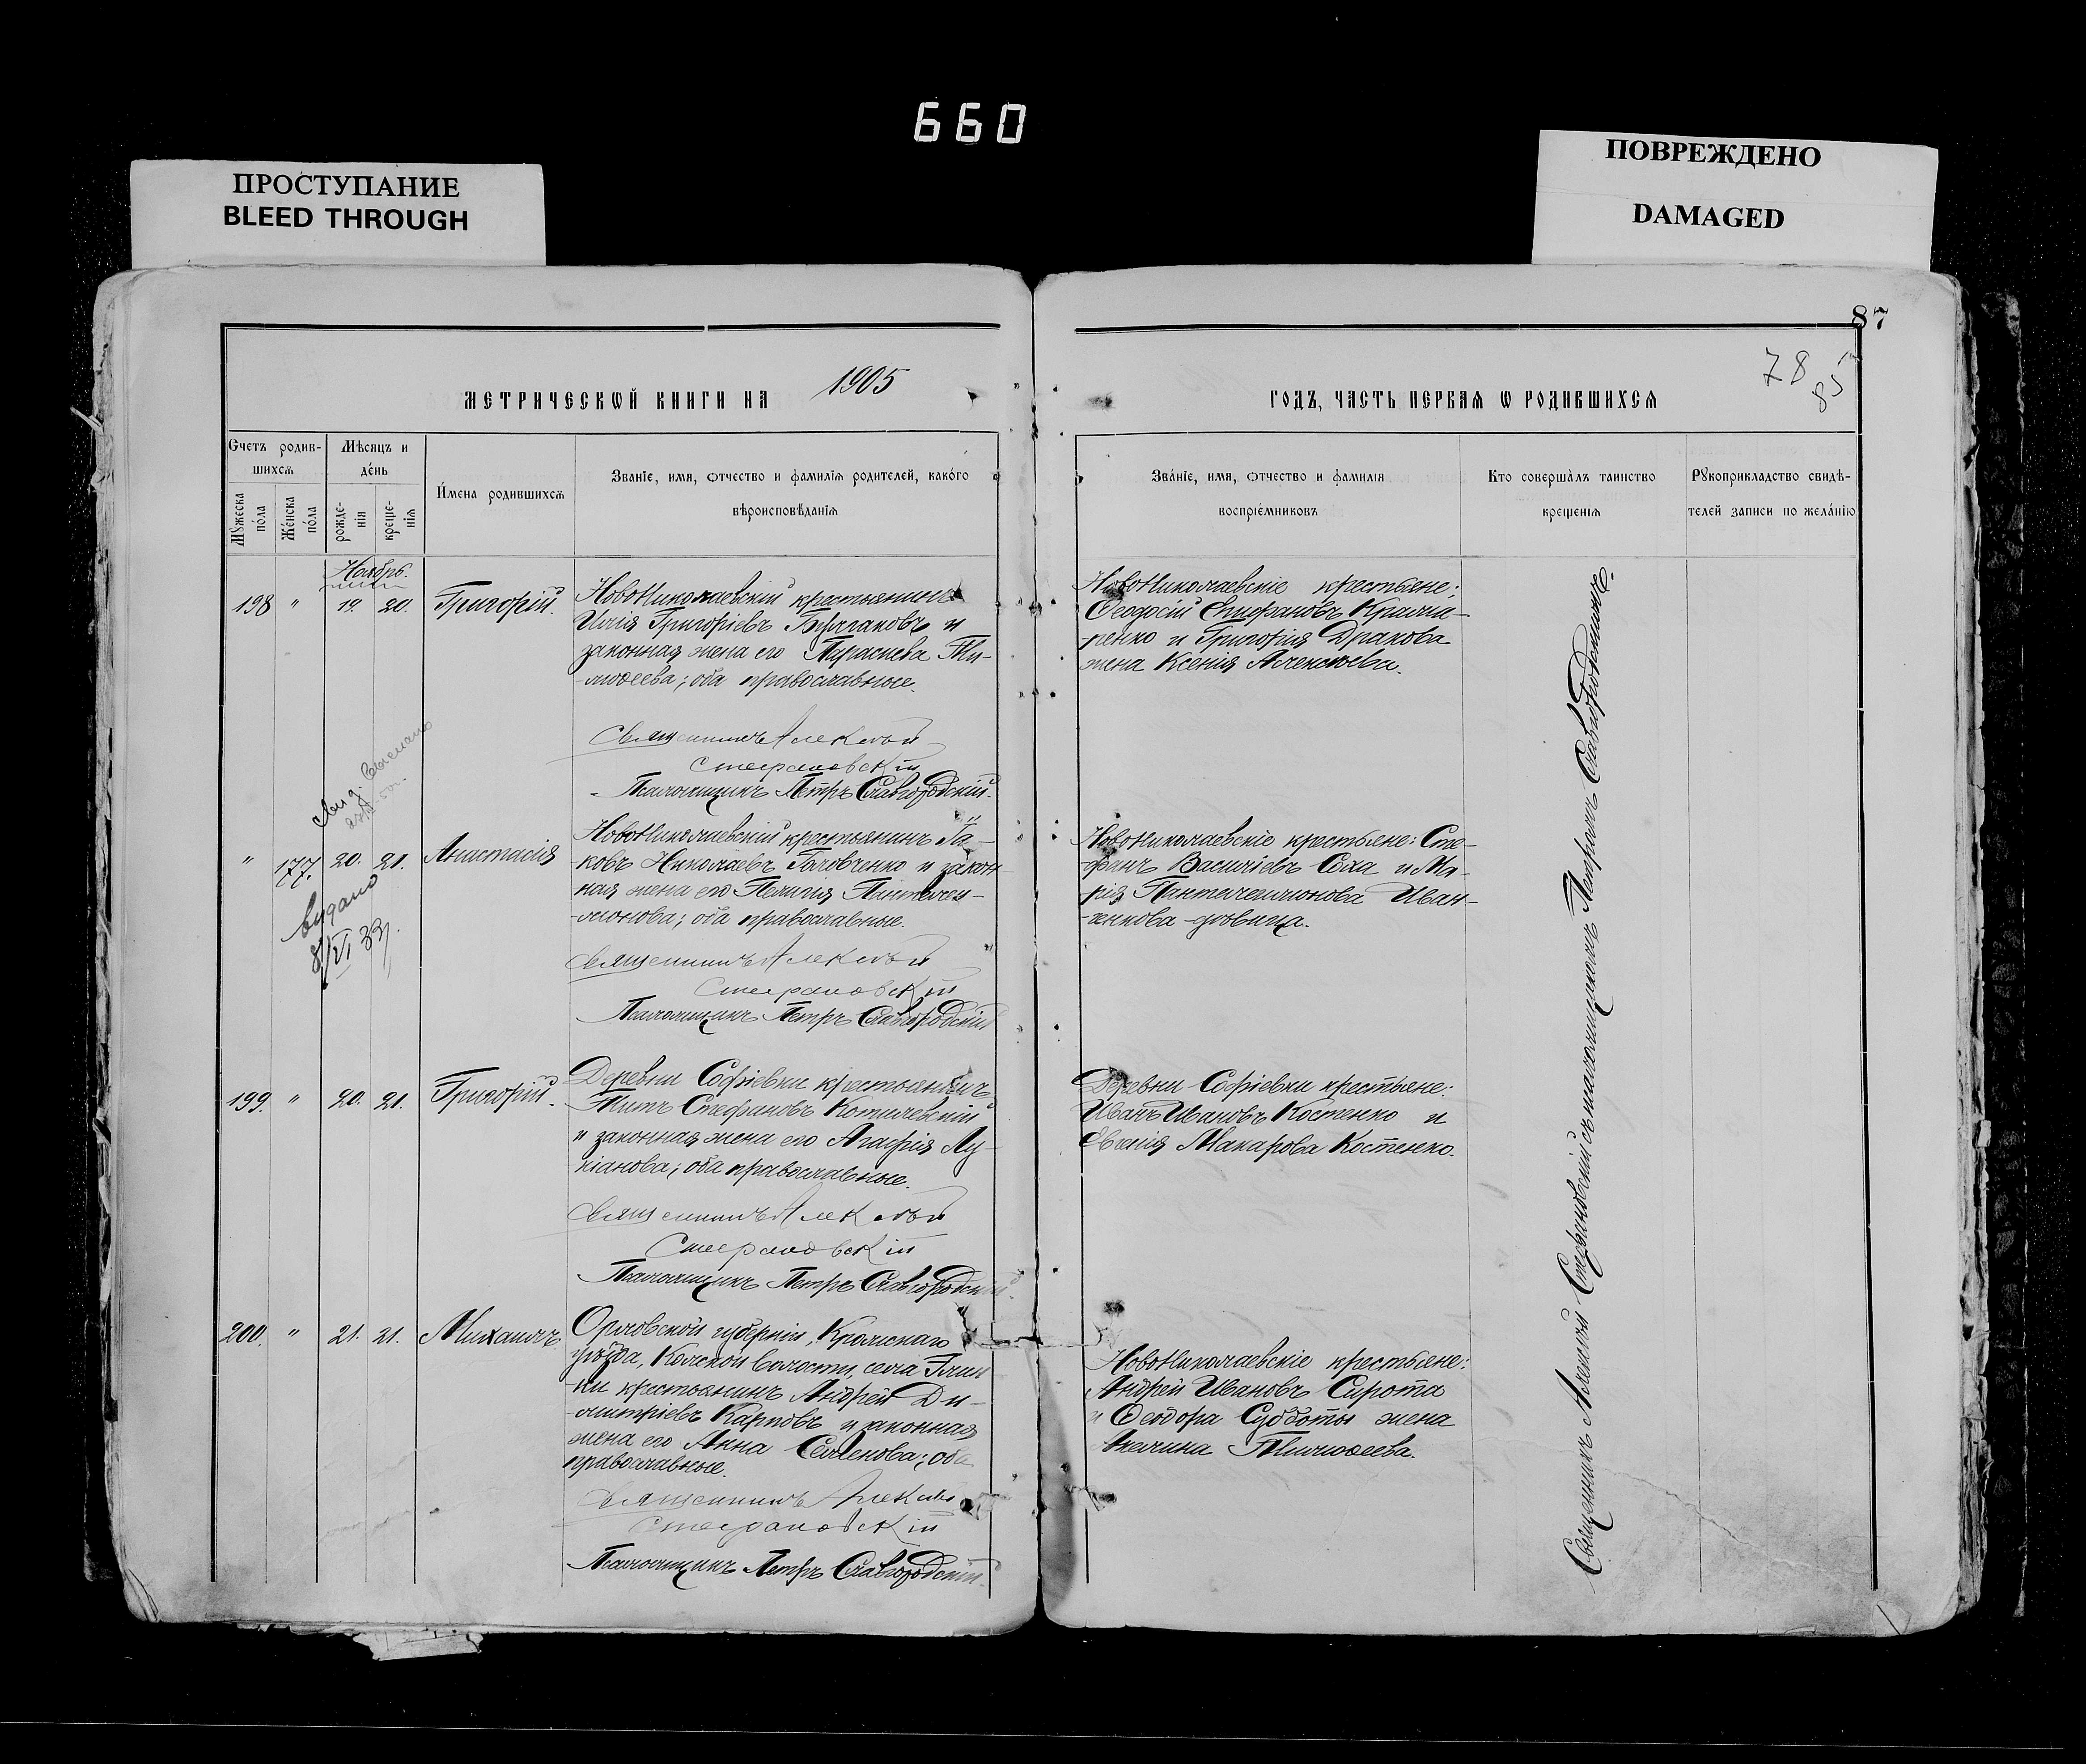 660
ПРОСТУПАНИЕ
BLEED THROUGH
ПОВРЕЖДЕНО
DAMAGED
87
78
85
МЕТРИЧЕСКѠЙ КНИГИ НА 1905
ГОДЪ, ЧАСТЬ ПЕРВАѦ Ѡ РОДИВШИХСѦ
Счетъ родив-
шихсѧ
Мѣсяцъ и
де́нь
Мꙋжеска
по́ла
Же́нска
по́ла
рожде-
нія
креще-
нія
И́мена родившихсѧ
Званіе, имя, ѻтчество и фамилія родителей, како́го
вѣроисповѣданія
Зва́ніе, имя, ѻтчество и фамилія
воспріе́мниковъ
Кто соверша́лъ таинство
крещенія
Рꙋкоприкладство свидѣ-
телей записи по жела́нію
Ноябрь.
198 " 19. 20. Григорій.
НовоНиколаевскій крестьянинъ
Илія Григоріевъ и
законная жена его Параскева Ти-
-моѳеева; оба православные.
Священникъ Алексѣй
Стефановскій
Псаломщикъ Петръ Славгородскій.
НовоНиколаевскіе крестьяне;
Ѳеодосій Епифановъ
-ренко и Григорія Дракова
жена Ксенія Алексѣева.
" 177. 20. 21. Анастасія
выдано
8/VI 33 г.
НовоНиколаевскій крестьянинъ Іа-
-ковъ Николаевъ Головченко и закон-
ная жена его Пелагія Пантелеи-
-монова; оба православные.
Священникъ Алексѣй
Стефановскій
Псаломщикъ Петръ Славгородскій
НовоНиколаевскіе крестьяне: Сте-
-фанъ Василіевъ Соха и Ма-
рія Пантелеимонова Иван-
-ченкова дѣвица.
199. " 20. 21. Григорій.
Деревни Софіевки крестьянинъ
Титъ Стефановъ Котилевскій
и законная жена его Агафія Лу-
кіанова; оба православные.
Священникъ Алексѣй
Стефановскій
Псаломщикъ Петръ Славгородскій.
Деревни Софіевки крестьяне:
Иванъ Ивановъ Костенко и
Евгенія Макарова Костенко.
200. " 21. 21. Михаилъ
Орловской губерніи, Кромскаго
уѣзда, волости, села Глин-
ки крестьянинъ Андрей Ди-
-митріевъ Карповъ и законная
жена его Анна Семенова; оба
православные.
Священникъ Алексѣй
Стефановскій
Псаломщикъ Петръ Славгородскій.
НовоНиколаевскіе крестьяне:
Андрей Ивановъ Сирота
и Ѳеодора Субботы жена
Акилина Тимоѳеева.
Священникъ Алексѣй Стефановскій съ псаломщикомъ Петромъ Славгородскимъ.